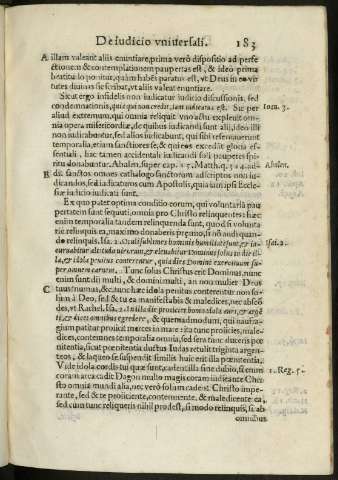 De iudicio vniuersali. 183
A illam valeant aliis enuntiare, prima verò dispositio ad perfe
ctionem & contemplationem paupertas est, & ideo prima
beatitudo ponitur, quàm habēs paratus est, vt Deus in eo vir
tutes diuinas se scribat, vt aliis valeat enuntiare.
Sicut ergo infidelis non iudicatur iudicio discussionis, sed
condemnationis, quia qui non credit, iam iudicatus est. Sic per Ioan. 3.
aliud extremum, qui omnia reliquit vno actu expleuit om-
nia opera misericordiæ, de quibus iudicandi sunt alii, ideo illi
non iudicabuntur, sed alios iudicabunt, qui sibi reseruauerunt
temporalia, etiam sanctiores, & qui eos excedūt gloria es-
sentiali, hac tamen accidentali iudicandi soli pauperes spi-
ritu donabuntur. Abulen. super cap. Matth. q. Abulen.
B dit sanctos omnes cathalogo sanctorum adscriptos non iu-
dicandos, sed iudicaturos cum Apostolis, quia iam ipsi Eccle-
siæ iudicio iudicati sunt.
Ex quo patet optima conditio eorum, qui voluntariā pau
pertatem sunt sequuti, omnia pro Christo relinquentes: hæc
enim temporalia tandem relinquenda sunt, quod si volunta-
riè relinquis ea, maximo donaberis præmio, si nō audi quan-
do relinquis. Isa. 2. Oculi sublimes hominis humiliati sunt, & in- Isai. 2.
curuabitur altitudo virorum, & eleuabitur Dominus solus in die il-
la, & idola penitus conterentur, quia dies Domini exercituum su-
per omnem earum. Tunc solus Christus erit Dominus, nunc
enim sunt dii multi, & domini multi, an non mulier Deus
C tuus? nummus, & c. tunc hæc idola penitus conterentur non so-
lùm à Deo, sed & tu ea manifestabis & maledices, nec abscō
des, vt Rachel. Isa. 2. In illa die proiicient homo idola sua, & argē
ti, & dices omnibus egredere, & quemadmodum, qui naufra-
gium patitur proiicit merces in mare: ita tunc proiicies, male-
dices, contemnes temporalia omnia, sed sera tunc duceris pœ
nitentia, sicut pœnitentia ductus Iudas retulit triginta argen-
teos, & laqueo se suspendit similis huic erit illa pœnitentia,
Vide idola cordis tui quæ sunt, cadent illa sine dubio, si enim 1. Reg. 5.
coram arca cadit Dagon: multo magis coram iudicante Chri
sto omnia mundi alia, nec verò solum cadent Christo impe-
rante, sed & te proiiciente, contemnente, & maledicente ea,
sed cum tunc reliqueris nihil prodest, si modo relinquis, si ab
omnibus